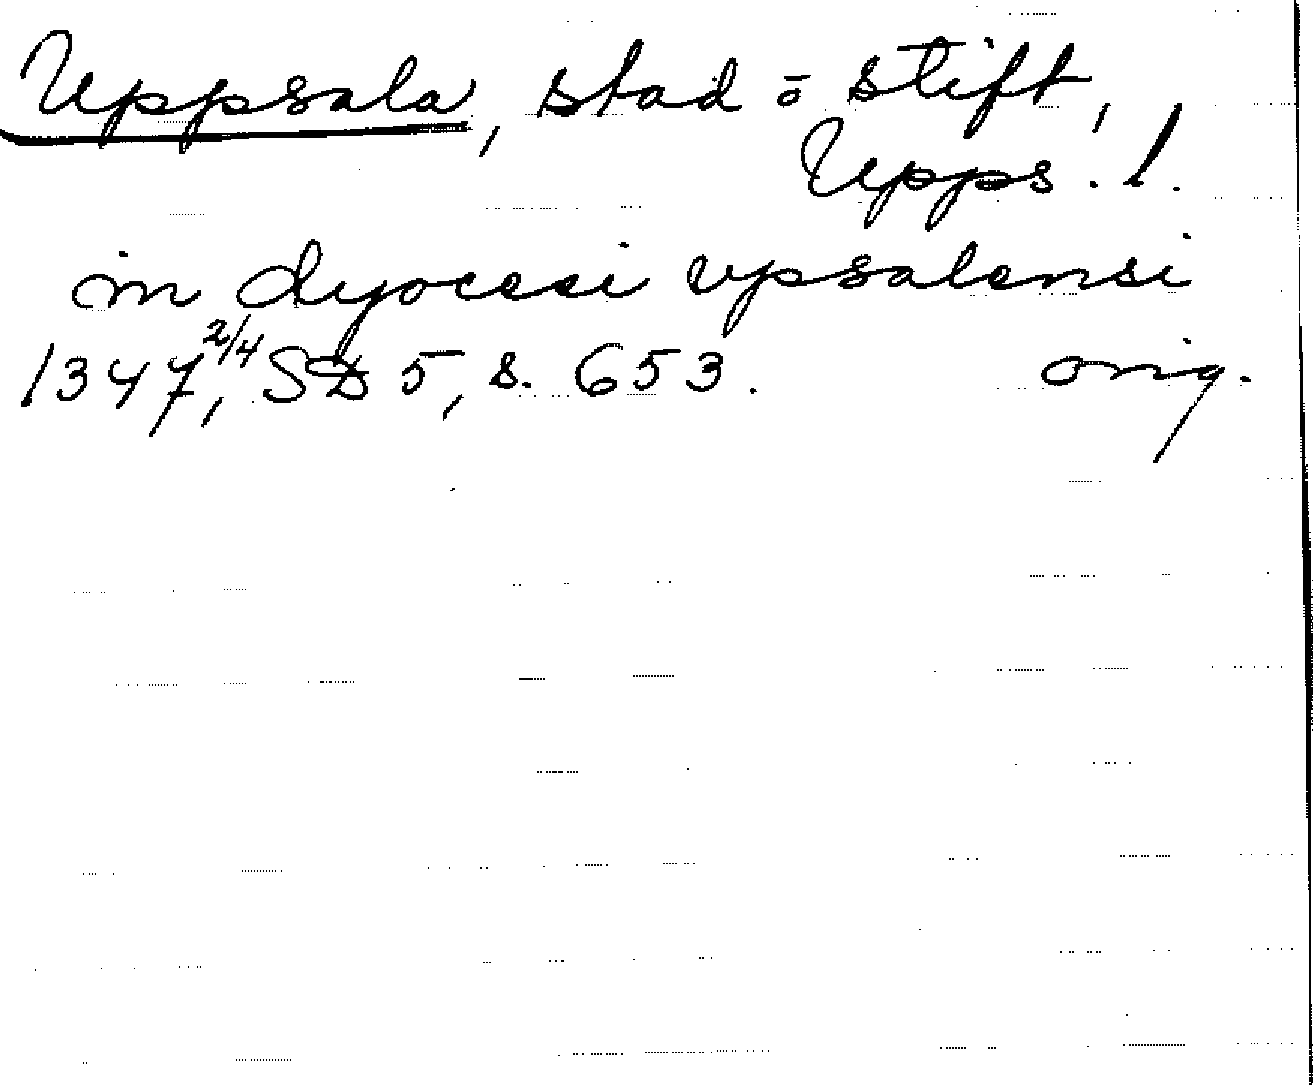 Uppsala, stad o stift,
Upps. l.
in dyocesi vpsalensi
1347 2/4, SD 5, s. 653. orig.